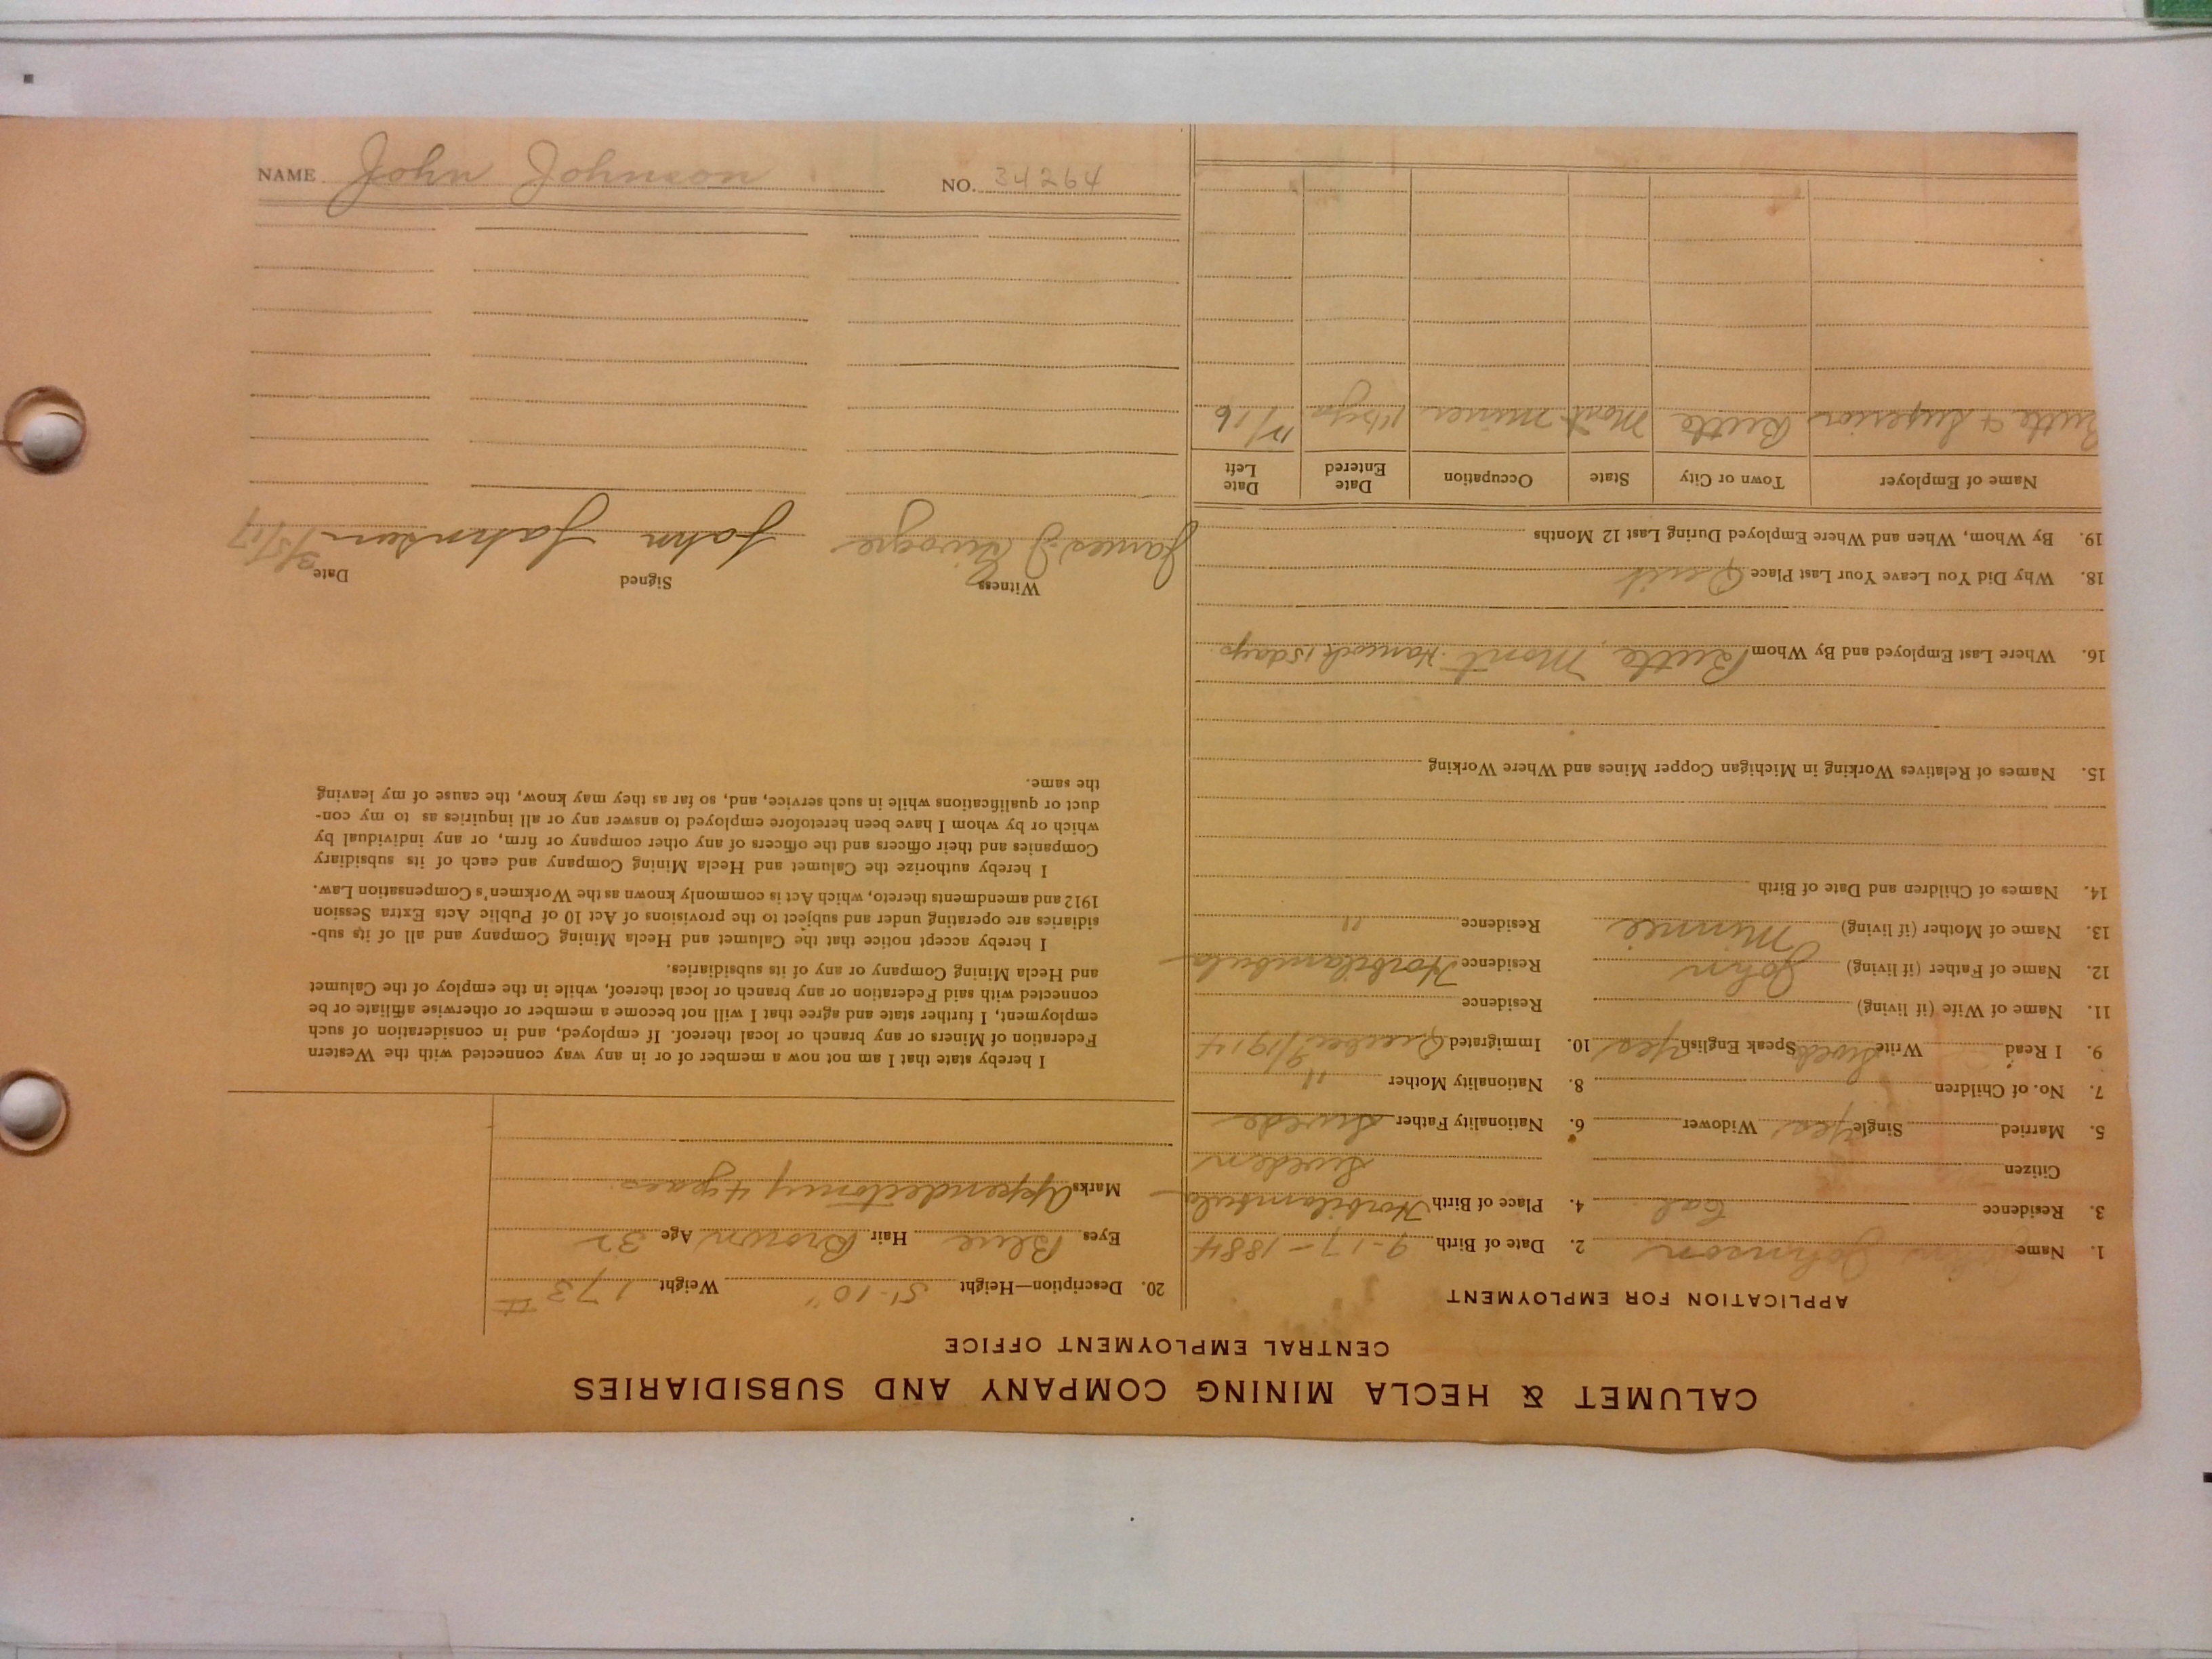 CALUMET & HECLA MINING COMPANY AND SUBSIDIARIES
CENTRAL EMPLOYMENT OFFICE
APPLICATION FOR EMPLOYMENT
1. Name John Johnson 2. Date of Birth 9-17-1884
3. Residence Cal 4. Place of Birth
Citizen Sweden
5. Married Single Yes Widower 6. Nationality Father Swede
7. No. of Children 8. Nationality Mother "
9. I Read Write Swede Speak English Yes 10. Immigrated Quebec 9/1914
11. Name of Wife (if living) Residence
12. Name of Father (if living) John Residence
13. Name of Mother (if living) Minnie Residence "
14. Names of Children and Date of Birth
15. Names of Relatives Working in Michigan Copper Mines and Where Working
16. Where Last Employed and By Whom Butte Mont. Hancock 15 days
18. Why Did You Leave Your Last Place Quit
19. By Whom, When and Where Employed During Last 12 Months
Name of Employer Town or City State Occupation Date Entered Date Left
Butte & Superior Butte Mont miner 12/16
20. Description—Height 5'-10" Weight 173 #
Eyes Blue Hair Brown Age 32
Marks Appendectomy 4 years
I hereby state that I am not now a member of or in any way connected with the Western
Federation of Miners or any branch or local thereof. If employed, and in consideration of such
employment, I further state and agree that I will not become a member or otherwise affiliate or be
connected with said Federation or any branch or local thereof, while in the employ of the Calumet
and Hecla Mining Company or any of its subsidiaries.
I hereby accept notice that the Calumet and Hecla Mining Company and all of its sub-
sidiaries are operating under and subject to the provisions of Act 10 of Public Acts Extra Session
1912 and amendments thereto, which Act is commonly known as the Workmen's Compensation Law.
I hereby authorize the Calumet and Hecla Mining Company and each of its subsidiary
Companies and their officers and the officers of any other company or firm, or any individual by
which or by whom I have been heretofore employed to answer any or all inquiries as to my con-
duct or qualifications while in such service, and, so far as they may know, the cause of my leaving
the same.
Witness Signed Date
James J John Johnson 3/5/17
NAME John Johnson NO. 34264